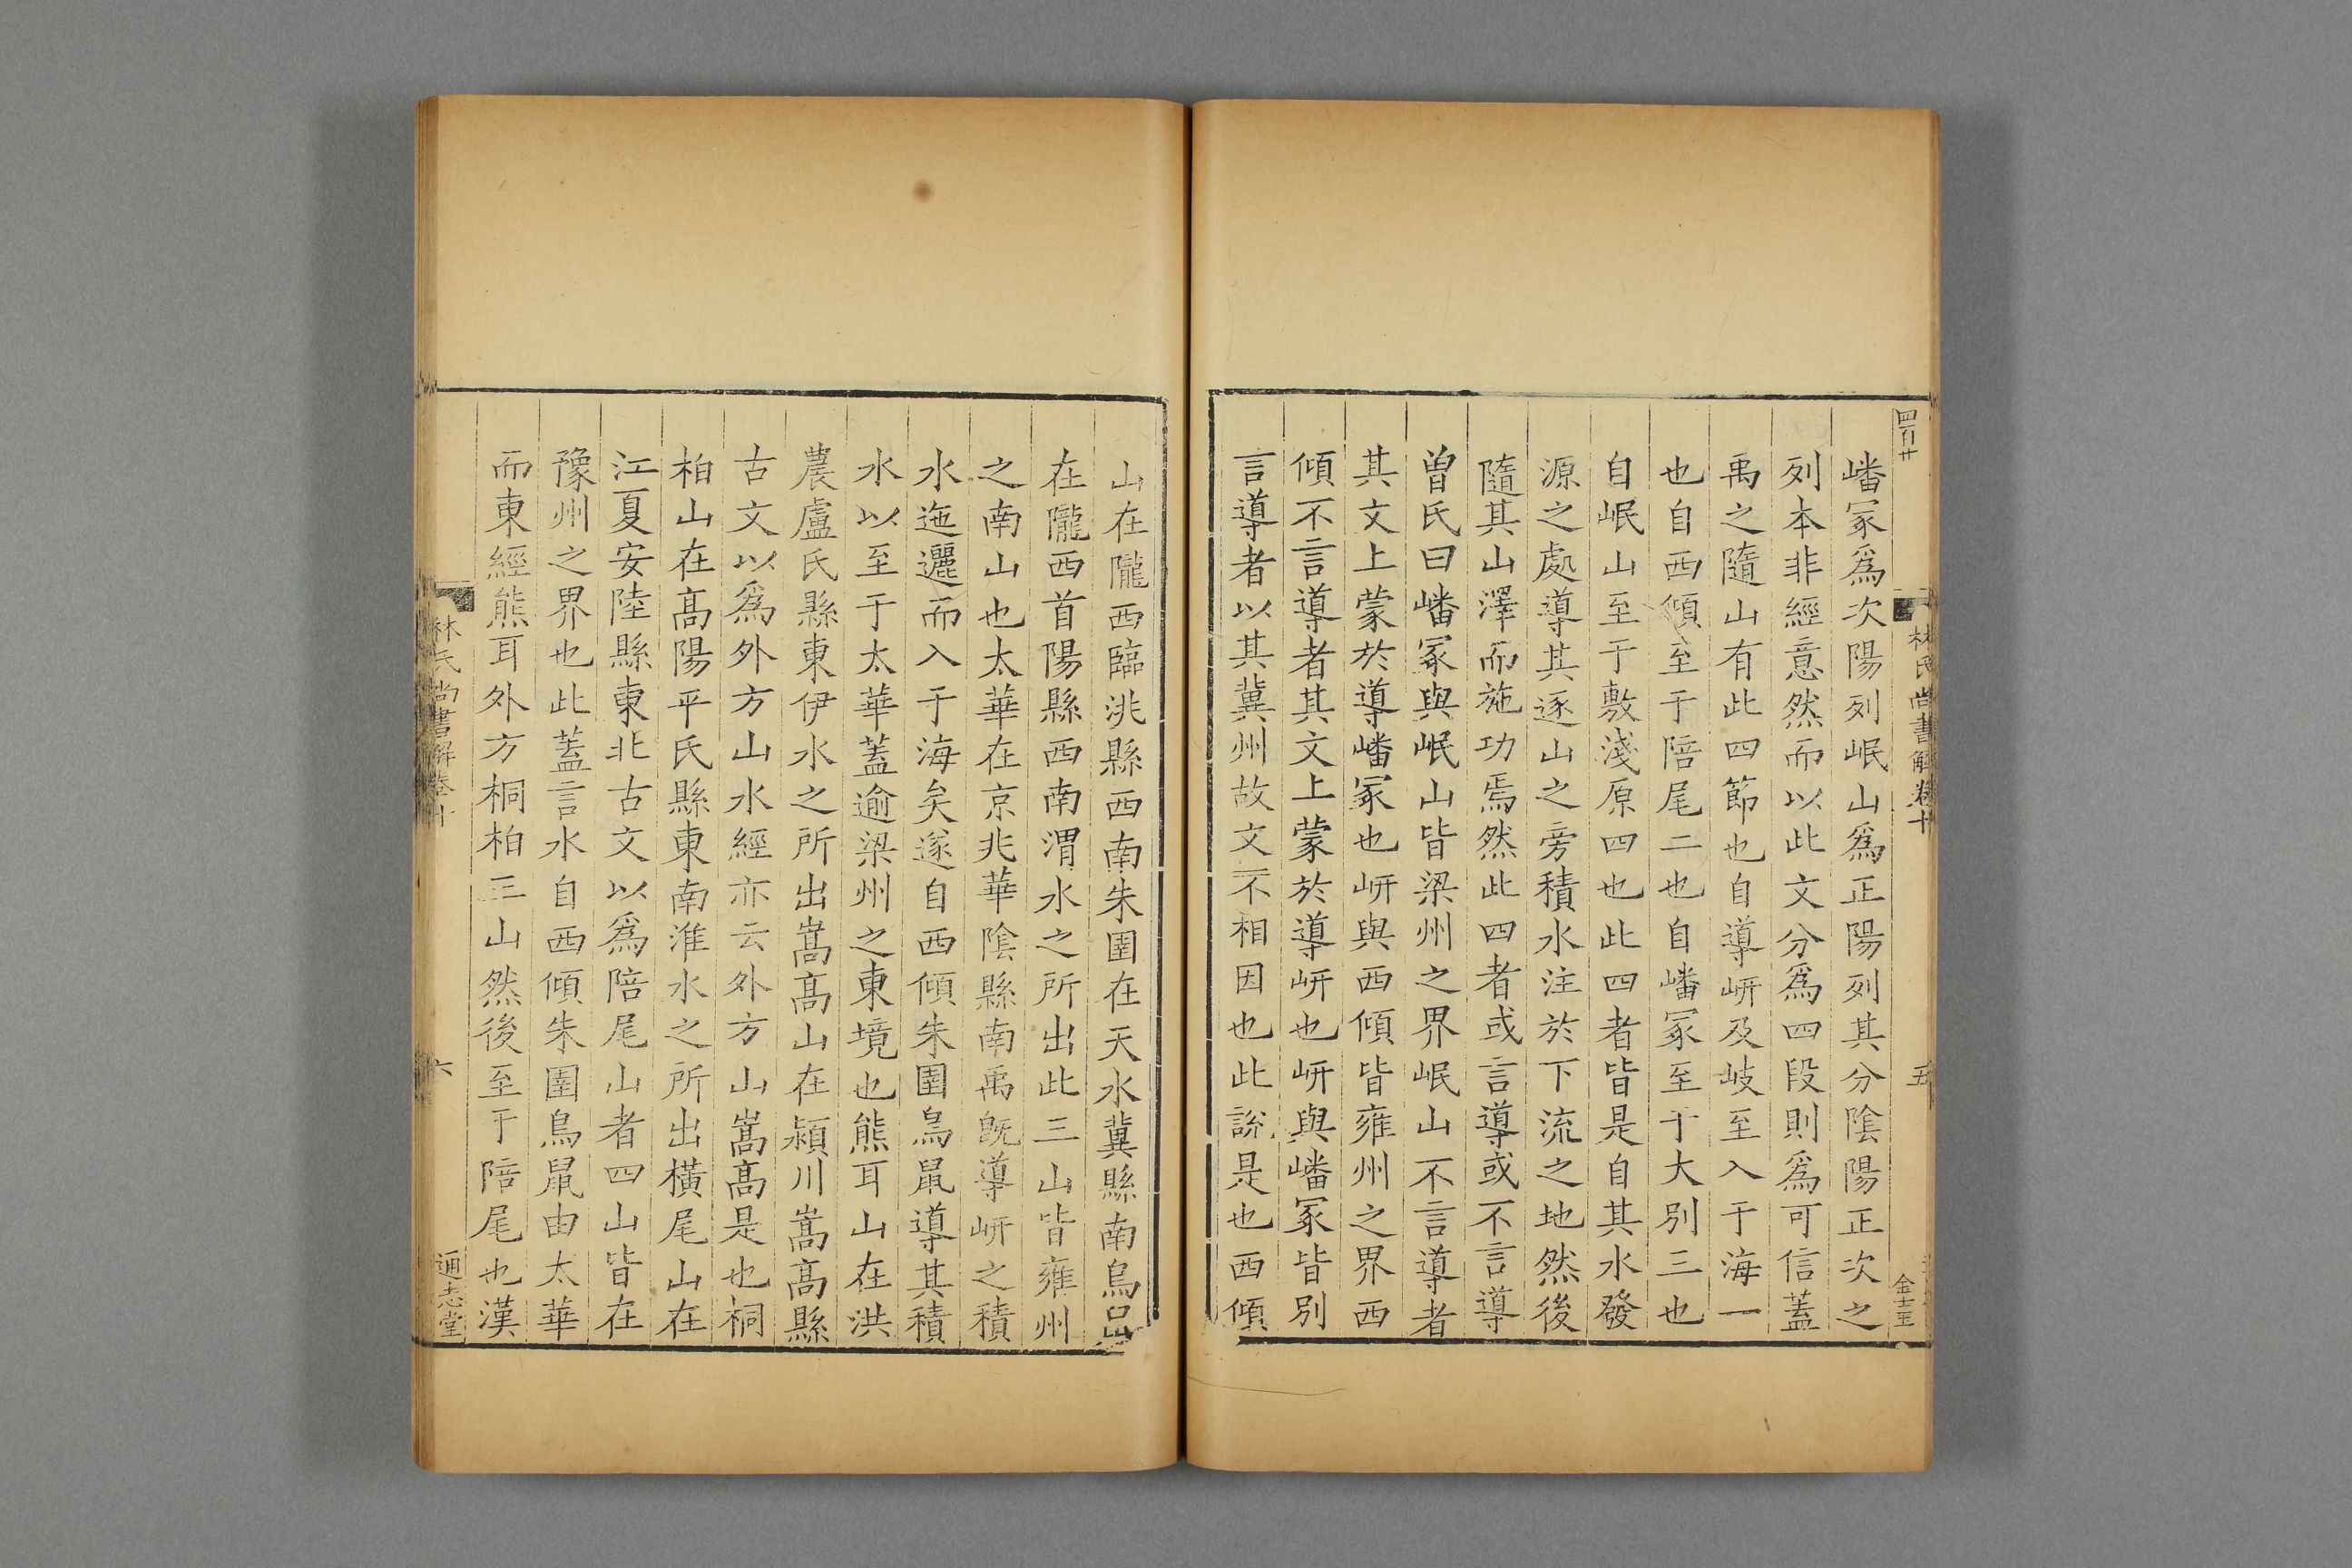 四百廿
林氏尚書解卷十
五
金士玉
嶓冢爲次陽列岷山爲正陽列其分陰陽正次之
列本非經意然而以此文分爲四段則爲可信蓋
禹之隨山有此四節也自導岍及岐至入于海一
也自西傾至于陪尾二也自嶓冢至于大別三也
自岷山至于敷淺原四也此四者皆是自其水發
源之處導其逐山之旁積水注於下流之地然後
隨其山澤而施功焉然此四者或言導或不言導
曾氏曰嶓冢與岷山皆梁州之界岷山不言導者
其文上蒙於導嶓冢也岍與西傾皆雍州之界西
傾不言導者其文上蒙於導岍也岍與嶓冢皆別
言導者以其冀州故文不相因也此說是也西傾
山在隴西臨洮縣西南朱圉在天水冀縣南鳥鼠
在隴西首陽縣西南渭水之所出此三山皆雍州
之南山也太華在京兆華陰縣南禹既導岍之積
水迤邐而入于海矣遂自西傾朱圉鳥鼠導其積
水以至于太華蓋逾梁州之東境也熊耳山在洪
農盧氏縣東伊水之所出嵩高山在潁川嵩高縣
古文以爲外方山水經亦云外方山嵩高是也桐
柏山在高陽平氏縣東南淮水之所出橫尾山在
江夏安陸縣東北古文以爲陪尾山者四山皆在
豫州之界也此蓋言水自西傾朱圉鳥鼠由太華
而東經熊耳外方桐柏三山然後至于陪尾也漢
林氏尚書解卷十
六
通志堂